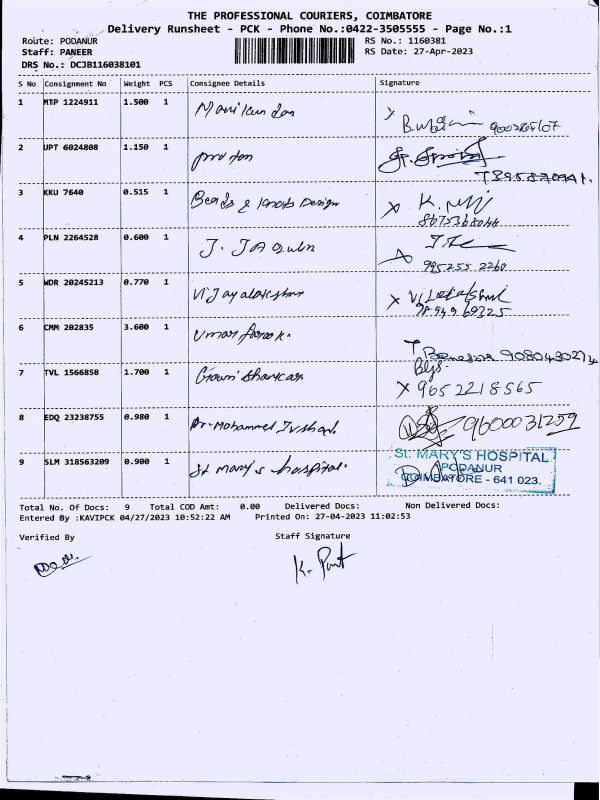 THE PROFESSIONAL COURIERS, COIMBATORE
Delivery Runsheet - PCK - Phone No.:0422-3505555 - Page No.:1
Route: PODANUR RS No.: 1160381
Staff: PANEER RS Date: 27-Apr-2023
DRS No.: DCJB116038101
S No Consignment No Weight PCS Consignee Details Signature
1 MTP 1224911 1.500 1 Manikandan
2 UPT 6024808 1.150 1 proton
3 KKU 7640 0.515 1 Beads & knots Design K.
8675368044
4 PLN 2264528 0.600 1 J. JAQulin
995255 2260
5 WDR 20245213 0.770 1 Vijayalakshmi
9894969325
6 CMM 202835 3.600 1 Umar farook.
7 TVL 1566858 1.700 1 Gowri Shankar
9652218565
8 EDQ 23238755 0.980 1 Dr. Mohammed Irshad 9600031259
9 SLM 318563209 0.900 1 St mary's hospital.
St. MARY'S HOSPITAL
PODANUR
COIMBATORE - 641 023.
Total No. Of Docs: 9 Total COD Amt: 0.00 Delivered Docs: Non Delivered Docs:
Entered By :KAVIPCK 04/27/2023 10:52:22 AM Printed On: 27-04-2023 11:02:53
Verified By Staff Signature